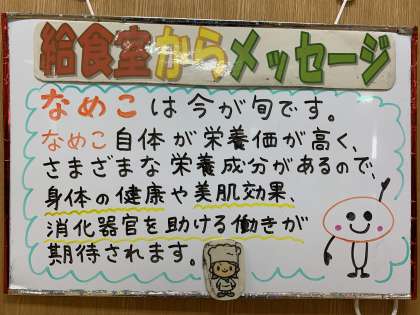 給食室からメッセージ
なめこは今が旬です。
なめこ自体が栄養価が高く、
さまざまな栄養成分があるので、
身体の健康や美肌効果、
消化器官を助ける働きが
期待されます。